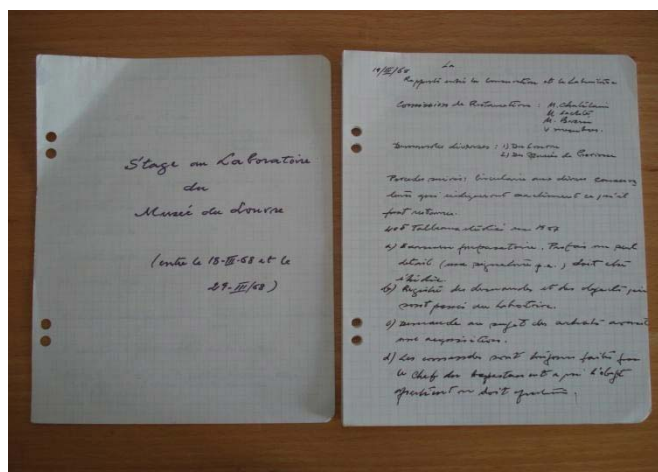 Stage au Laboratoire
du
Musée du Louvre
(entre le 18-III-68 et le
29-III/68)
La
Rapports entre la conservation et le Laboratoire
Commission de Restauration : M. Chatelain
M.
M.
4 membres.
Demandes diverses : 1) Du Louvre
2) Du Musée de
circulaire aux divers
qui indiqueront exactement ce qu'il
faut
405 Tableaux étudiés en 1967
a) Examen préparatoire. Parfois un seul
détail (une signature p.e.) doit être
étudié
b) Registre des demandes et des objets qui
sont passés au Laboratoire.
c) Demande au sujet des achats avant
une acquisition.
d) Les commandes sont toujours faites par
le Chef du Département à qui l'objet
appartient ou doit